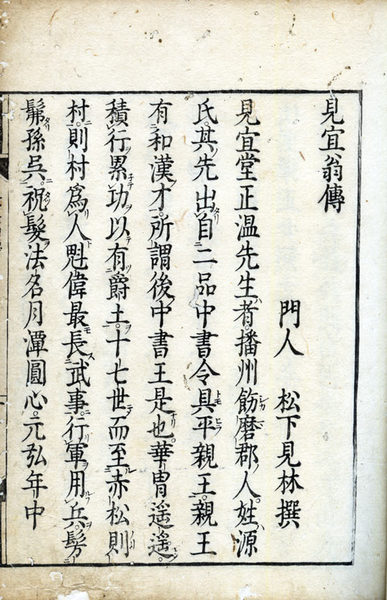 見宜翁傳
門人 松下見林撰
見宜堂正溫先生者播州飾磨郡人姓源
氏其先出自二品中書令具平親王親王
有和漢才所謂後中書王是也華胄遙遙
積行累功以有爵土十七世而至赤松則
村則村爲人魁偉最長武事行軍用兵髣
髴孫呉祝髮法名月潭圓心元弘年中